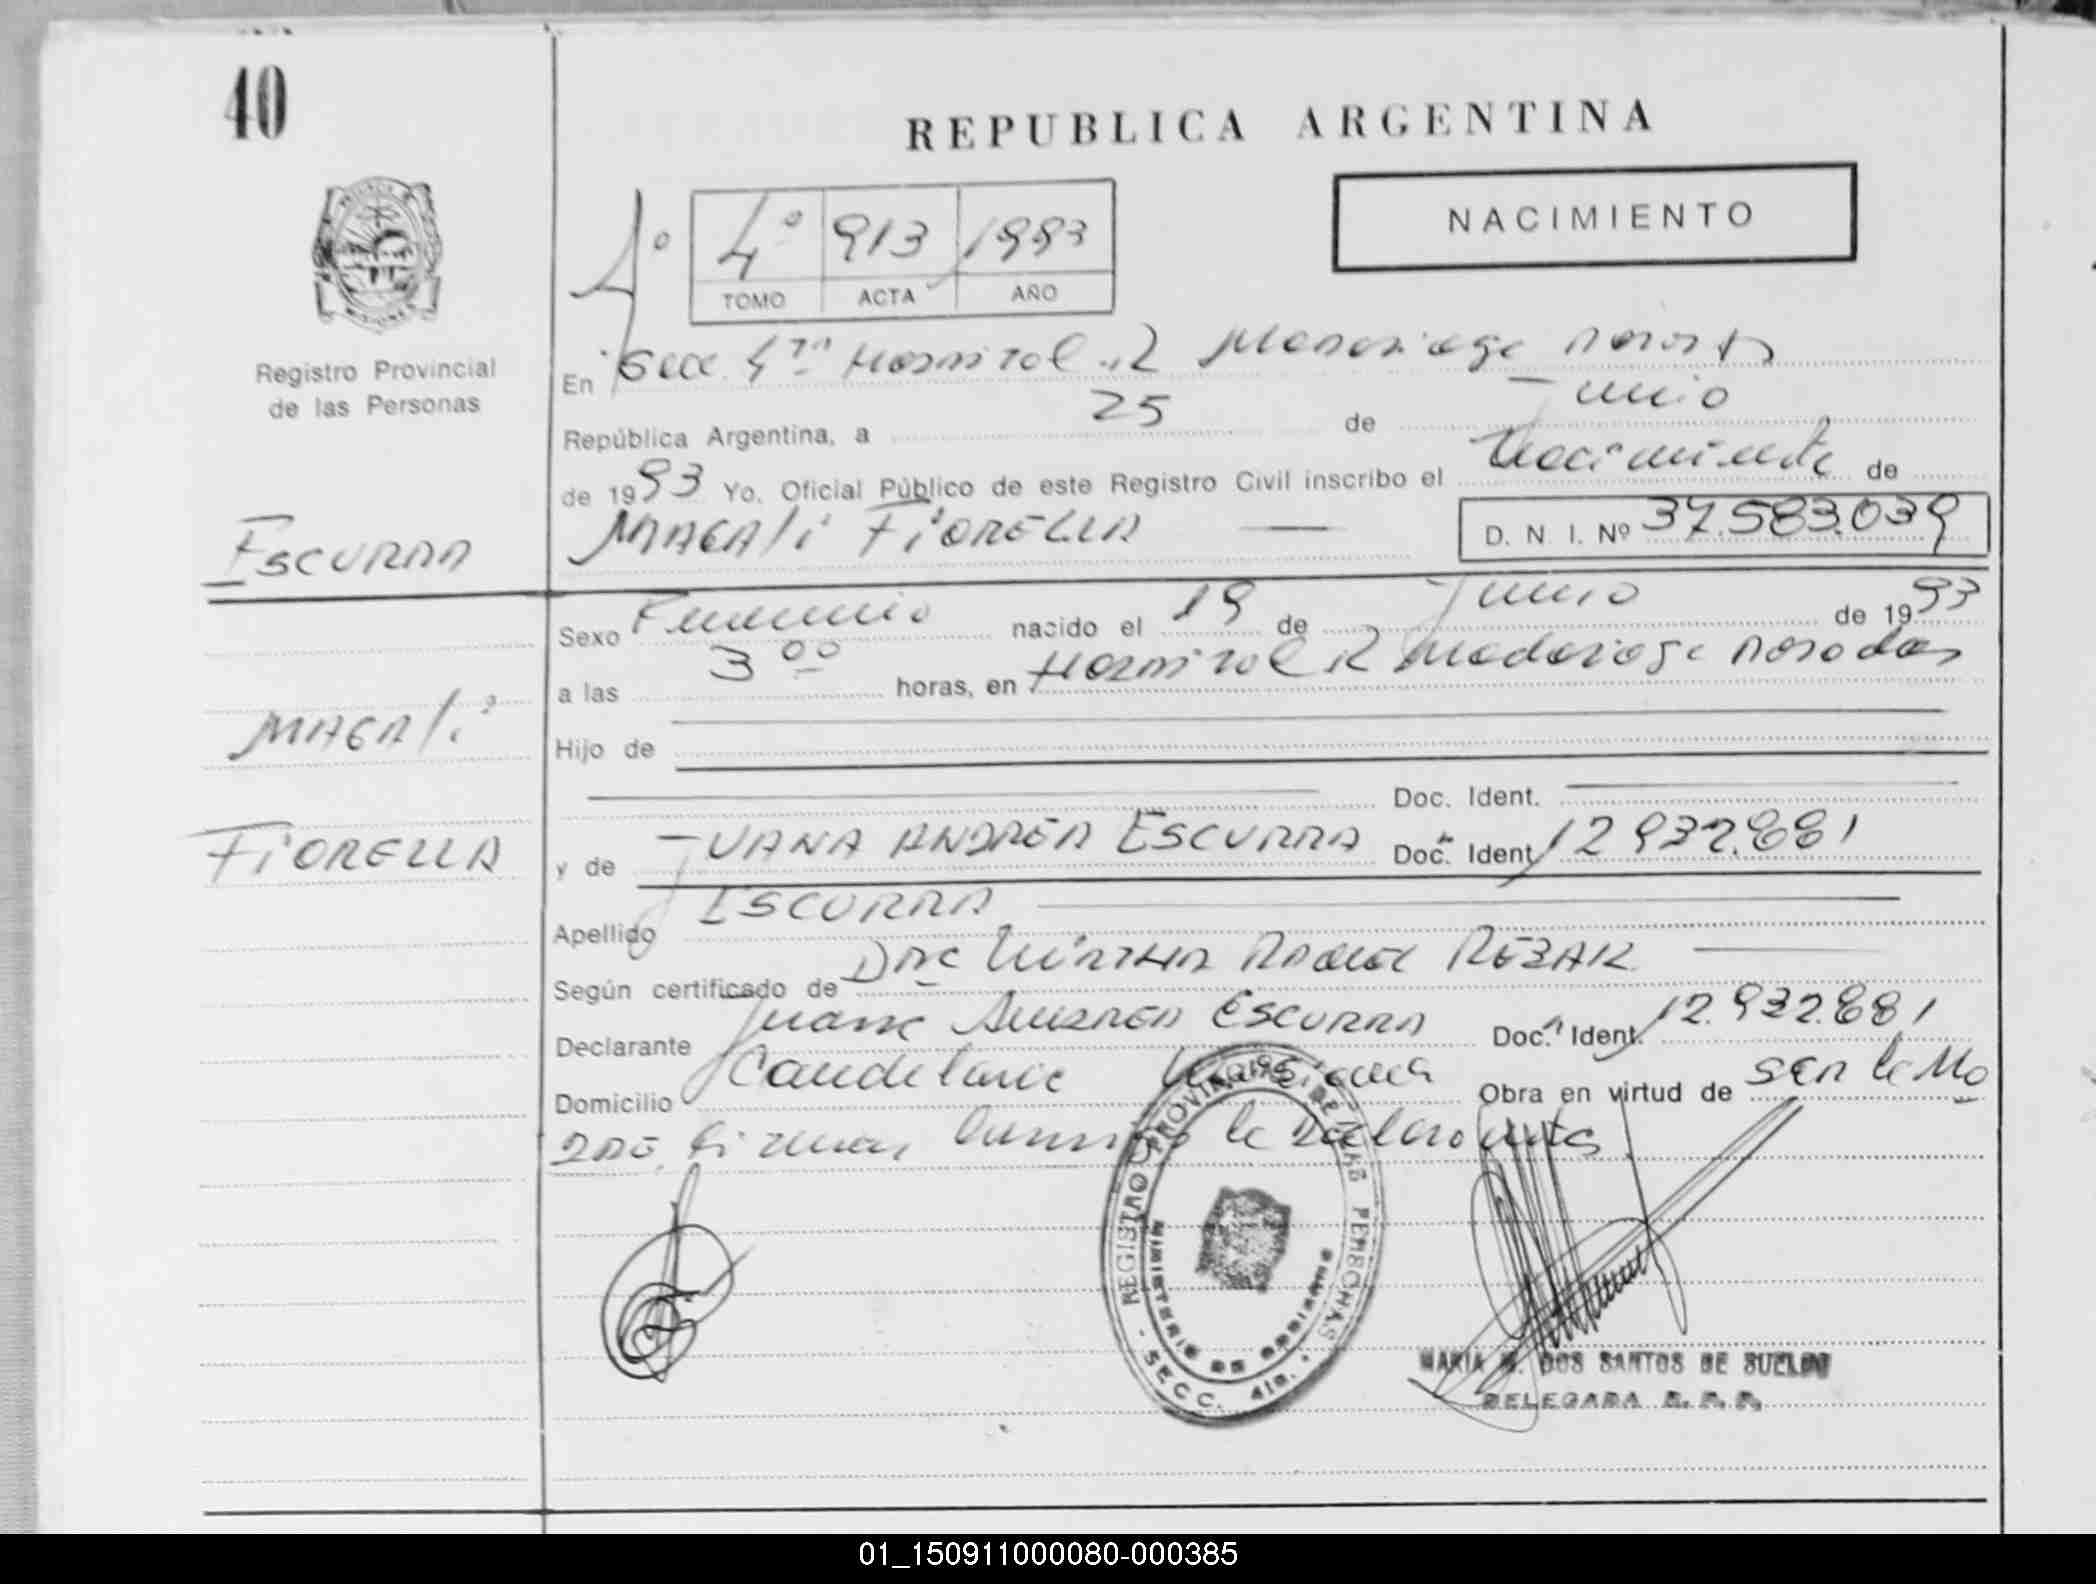 40
REPUBLICA ARGENTINA
NACIMIENTO
4º 4º 913 1993
TOMO ACTA AÑO
Registro Provincial
de las Personas
En Secc. 4ta Hospital R Madariaga Posadas
República Argentina, a 25 de Junio
de 1993 Yo. Oficial Público de este Registro Civil inscribo el Nacimiento de
ESCURRA
MAGALí FIORELLA D. N. I. Nº 37.583.039
Sexo Femenino nacido el 19 de Junio de 1993
a las 3 00 horas, en Hospital R Madariaga Posadas
MAGALí
Hijo de
Doc. Ident.
FIORELLA
y de JUANA ANDREA ESCURRA Doc. Ident 12.932.881
Apellido ESCURRA
Según certificado de Dra MIRTHA RAQUEL REZAK
Declarante Juana Andrea ESCURRA Doc. Ident. 12.932.881
Domicilio Candelaria Misiones Obra en virtud de ser la Ma
dre. firman
REGISTRO PROVINCIAL DE LAS PERSONAS
MINISTERIO DE GOBIERNO
SECC. 4ta.
MARIA DOS SANTOS DE SUELDO
DELEGADA R. P. P.
01_150911000080-000385